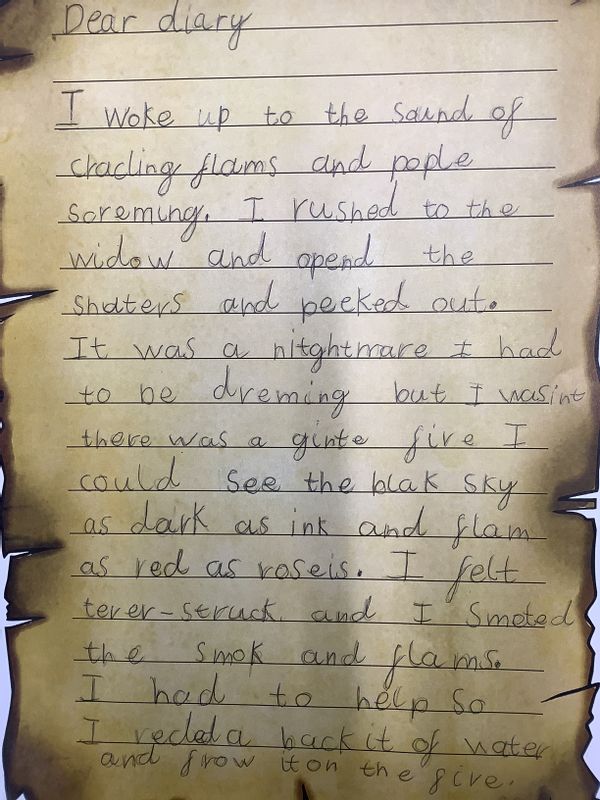 Dear diary
I woke up to the sound of
cracling flams and pople
screming. I rushed to the
widow and opend the
shaters and peeked out.
It was a nitghtmare I had
to be dreming but I wasint
there was a ginte fire I
could see the blak sky
as dark as ink and flam
as red as roseis. I felt
terer-struck and I smeted
the smok and flams.
I had to help so
I a backit of water
and frow it on the fire.